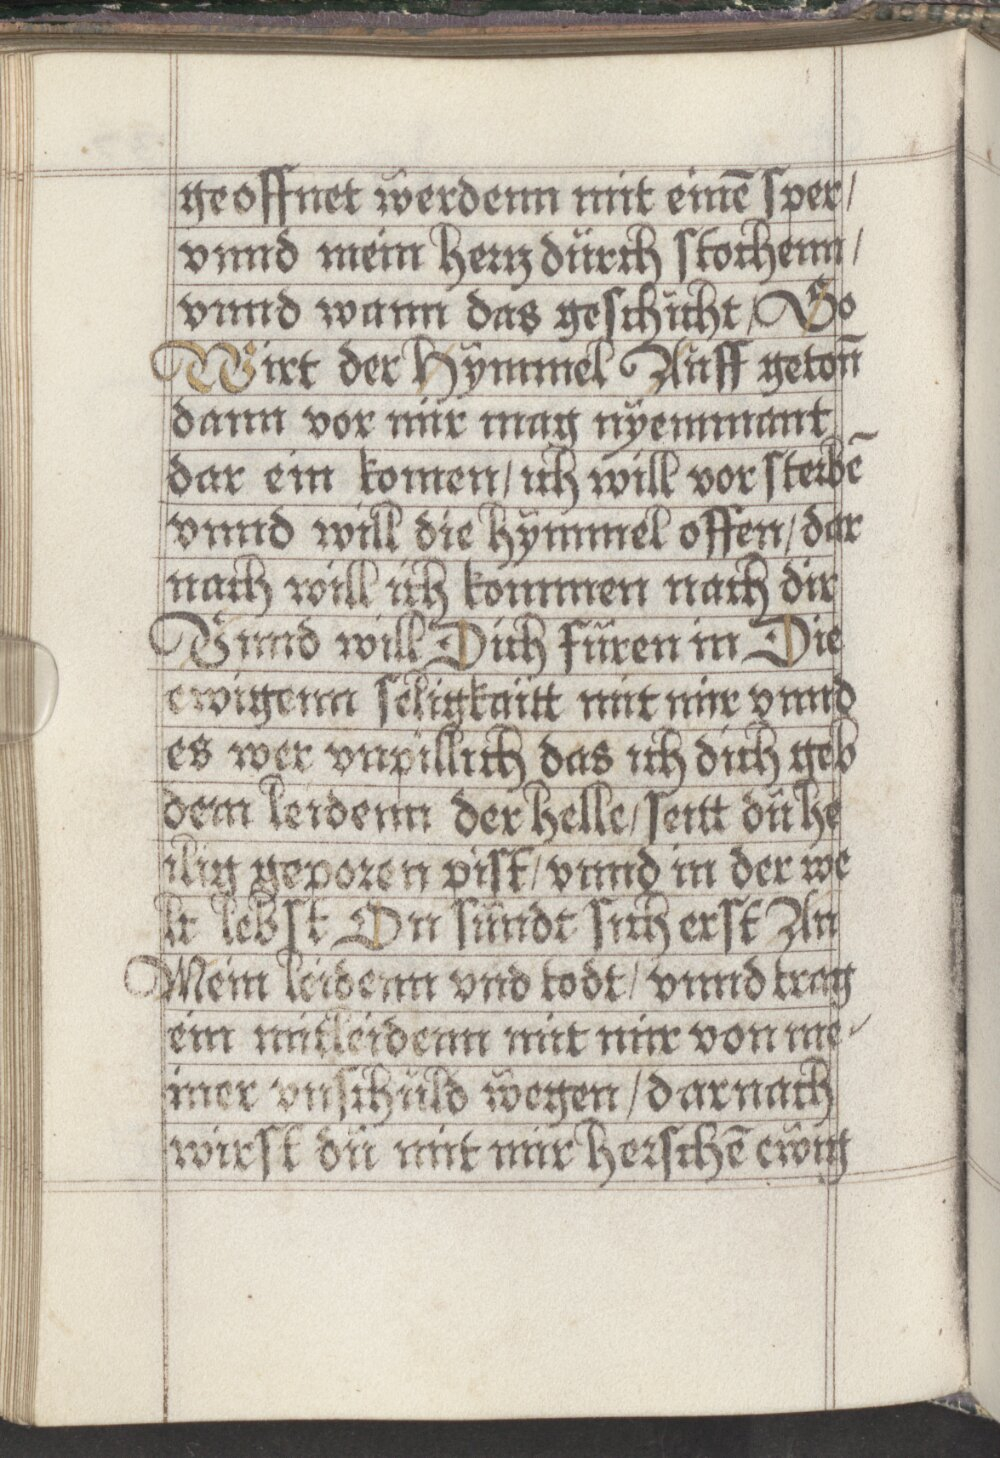 geoffnet werdenn mit einē sper/
vnnd mein hertz dürch stochenn/
vnnd wann das geschicht/ So
Wirt der Hymmel Auff geton̄
dann vor mir mag nyemmant
dar ein komen/ ich will vor sterbē
vnnd will die hymmel offen/ dar
nach will ich kommen nach dir
Vnnd will Dich füren in Die
ewigenn seligkaitt mit mir vnnd
es wer vnpillich das ich dich geb
dem leidenn der helle/ seitt dü he
ilig geporen pist/ vnnd in der we
lt lebst On sündt sich erst An
Mein leidenn vnd todt/ vnnd trag
ein mitleidenn mit mir von me-
iner vnschüld wegen/ darnach
wirst dü mit mir herschē ewig